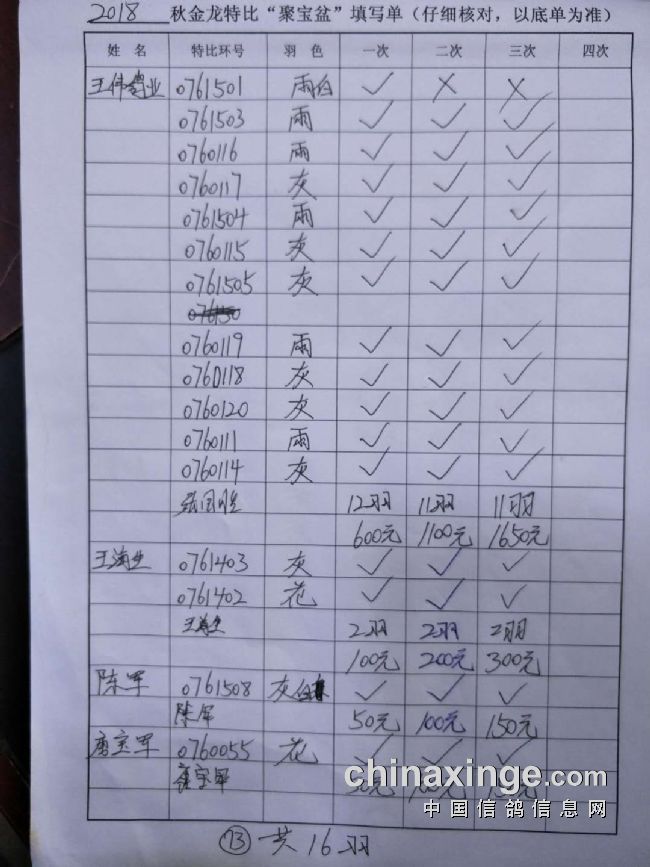 2018 秋金龙特比“聚宝盆”填写单（仔细核对，以底单为准）
姓 名 特比环号 羽 色 一次 二次 三次 四次
王伟鸽业 0761501 雨白 ✓ × ×
0761503 雨 ✓ ✓ ✓
0760116 雨 ✓ ✓ ✓
0760117 灰 ✓ ✓ ✓
0761504 雨 ✓ ✓ ✓
0760115 灰 ✓ ✓ ✓
0761505 灰 ✓ ✓ ✓
0760119 雨 ✓ ✓ ✓
0760118 灰 ✓ ✓ ✓
0760120 灰 ✓ ✓ ✓
0760111 雨 ✓ ✓ ✓
0760114 灰 ✓ ✓ ✓
12羽 11羽 11羽
600元 1100元 1650元
0761403 灰 ✓ ✓ ✓
0761402 花 ✓ ✓ ✓
2羽 2羽 2羽
100元 200元 300元
陈军 0761508 灰白 ✓ ✓ ✓
陈军 50元 100元 150元
唐宝军 0760055 花 ✓ ✓ ✓
唐宝军
chinaxinge.com
中国信鸽信息网
73 共16羽